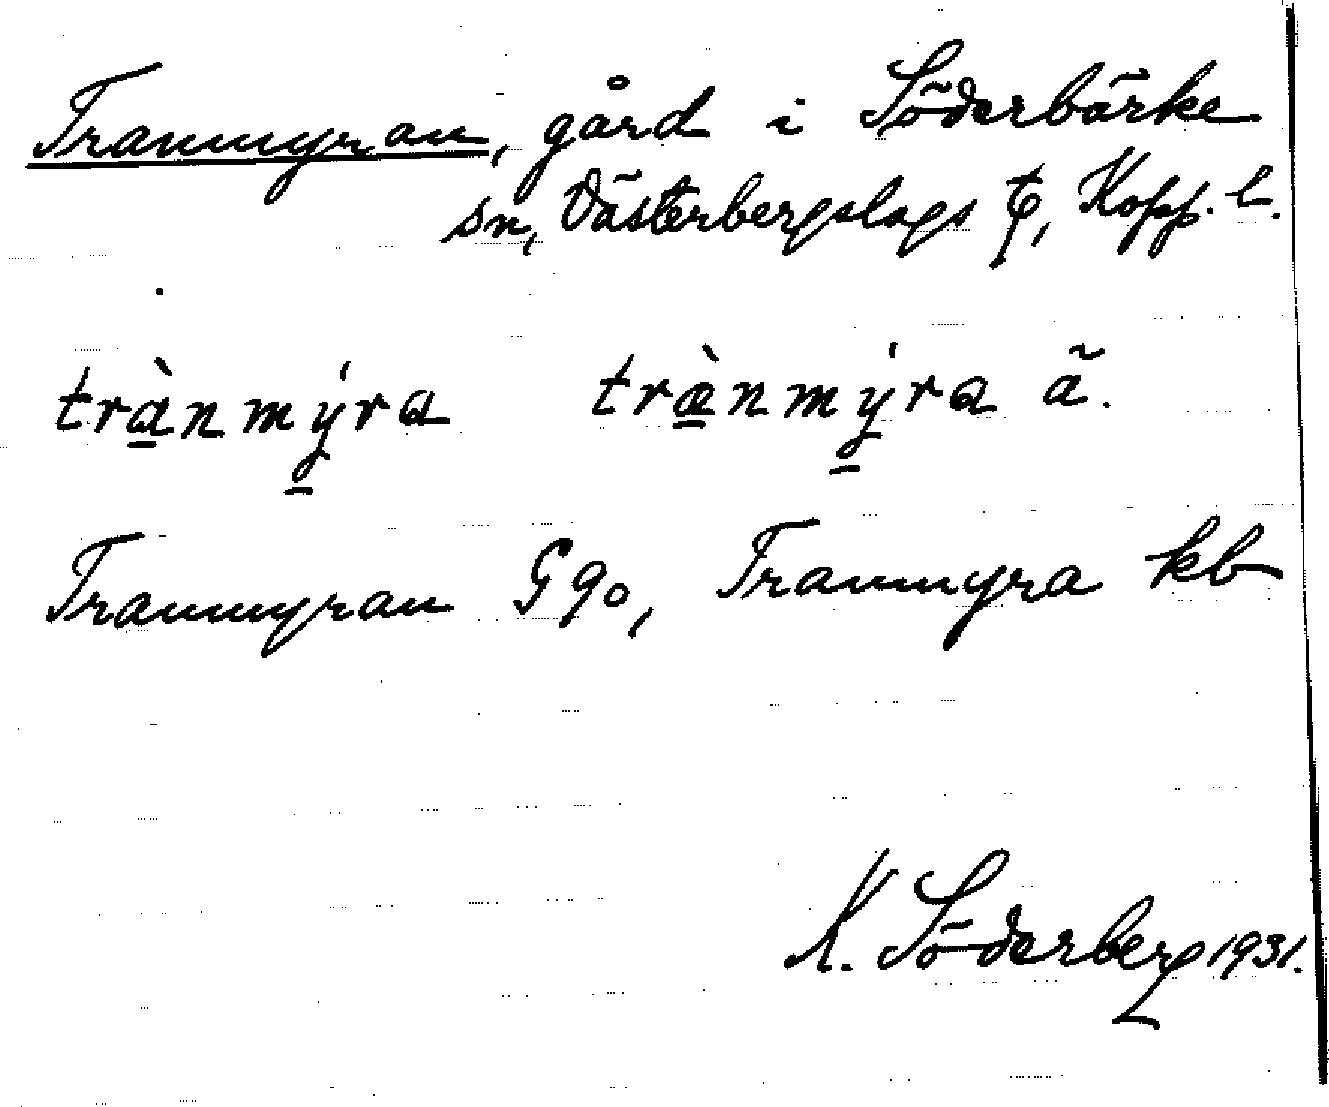 Tranmyran, gård i Söderbärke
sn, Västerbergslags t, Kopp. l.
trànmýra træ̀nmýra ä.
Tranmyran G 90, Tranmyra kb
K. Söderberg 1931.